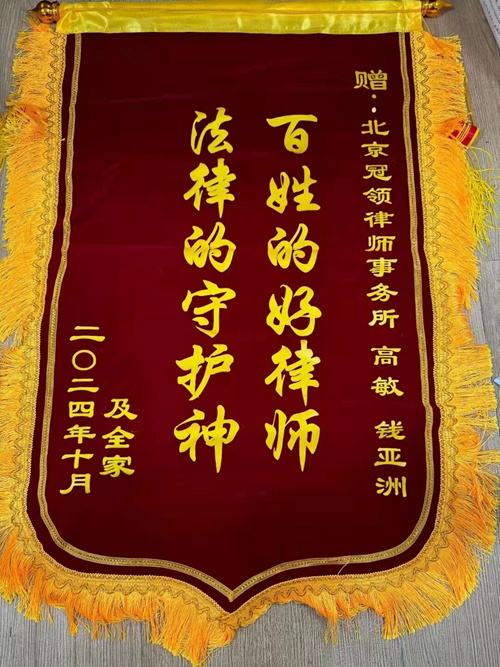 赠：北京冠领律师事务所 高敏 钱亚洲
百姓的好律师
法律的守护神
及全家
二〇二四年十月